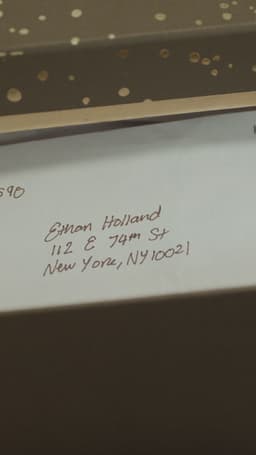 590
Ethan Holland
112 E 74th St
New York, NY 10021